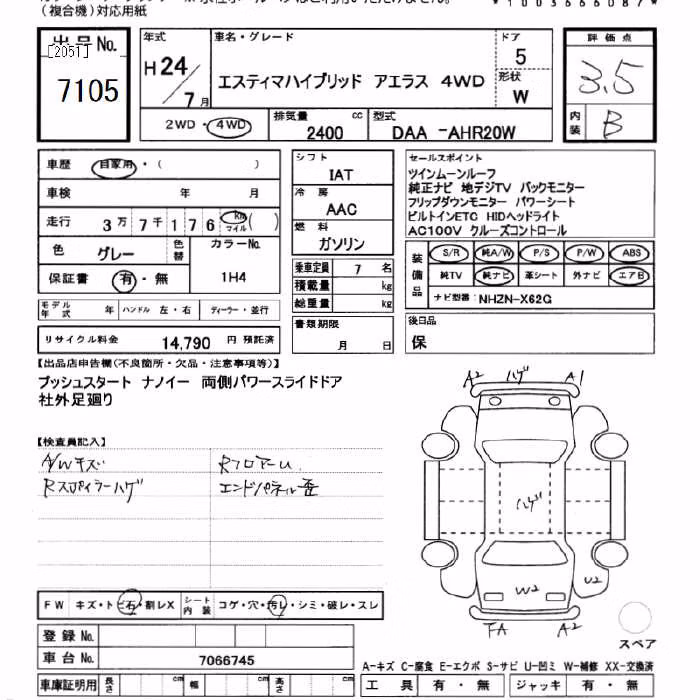 (複合機)対応用紙
*1003666087*
出品No.
[2051]
7105
年式
H24/7月
車名・グレード
エスティマハイブリッド アエラス 4WD
ドア
5
形状
W
評価点
3.5
内装
B
2WD・4WD
排気量
2400
cc
型式
DAA -AHR20W
車歴
自家用・( )
車検
年 月
走行
3万7千176
km
マイル
( )
色
グレー
色替
カラーNo.
1H4
保証書
有・無
モデル年式
年
ハンドル
左・右
ディーラー・並行
リサイクル料金
14,790 円 預託済
シフト
IAT
冷房
AAC
燃料
ガソリン
乗車定員
7 名
積載量
kg
総重量
kg
書類期限
月 日
セールスポイント
ツインムーンルーフ
純正ナビ 地デジTV バックモニター
フリップダウンモニター パワーシート
ビルトインETC HIDヘッドライト
AC100V クルーズコントロール
装備品
S/R 純A/W P/S P/W ABS
純TV 純ナビ 革シート 外ナビ エアB
ナビ型番: NHZN-X62G
後日品
保
【出品店申告欄(不良箇所・欠品・注意事項等)】
プッシュスタート ナノイー 両側パワースライドドア
社外足廻り
【検査員記入】
A/Wキズ
Rスポイラーハゲ
RフロアーU
エンドパネル歪
A2 ハゲ A1
ハゲ
W2
U2
FA A2
スペア
FW
キズ・トビ石・割レX
シート内装
コゲ・穴・汚レ・シミ・破レ・スレ
登録No.
車台No.
7066745
車庫証明用
長さ
cm
幅
cm
高さ
cm
A-キズ C-腐食 E-エクボ S-サビ U-凹ミ W-補修 XX-交換済
工具
有・無
ジャッキ
有・無